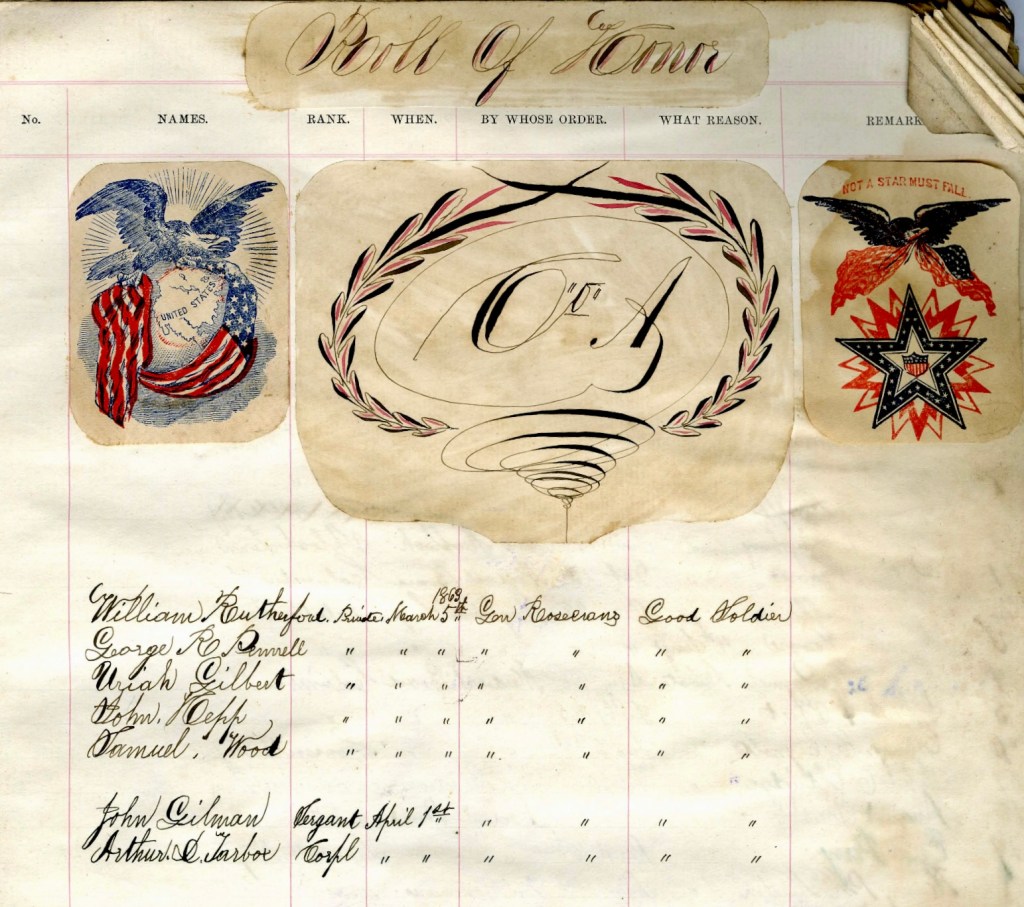 Roll Of Honor
No. NAMES. RANK. WHEN. BY WHOSE ORDER. WHAT REASON. REMARK
UNITED STATES
NOT A STAR MUST FALL
Co "o" A
William Rutherford. Private March 5th 1863 Gen Rosecrans Good Soldier
George R Pennell " " " " " " "
Uriah Gilbert " " " " " " "
John. Hepp " " " " " " "
Samuel. Wood " " " " " " "
John Gilman Sergant April 1st " " " "
Arthur. D. Tarbox Corpl " " " " " "